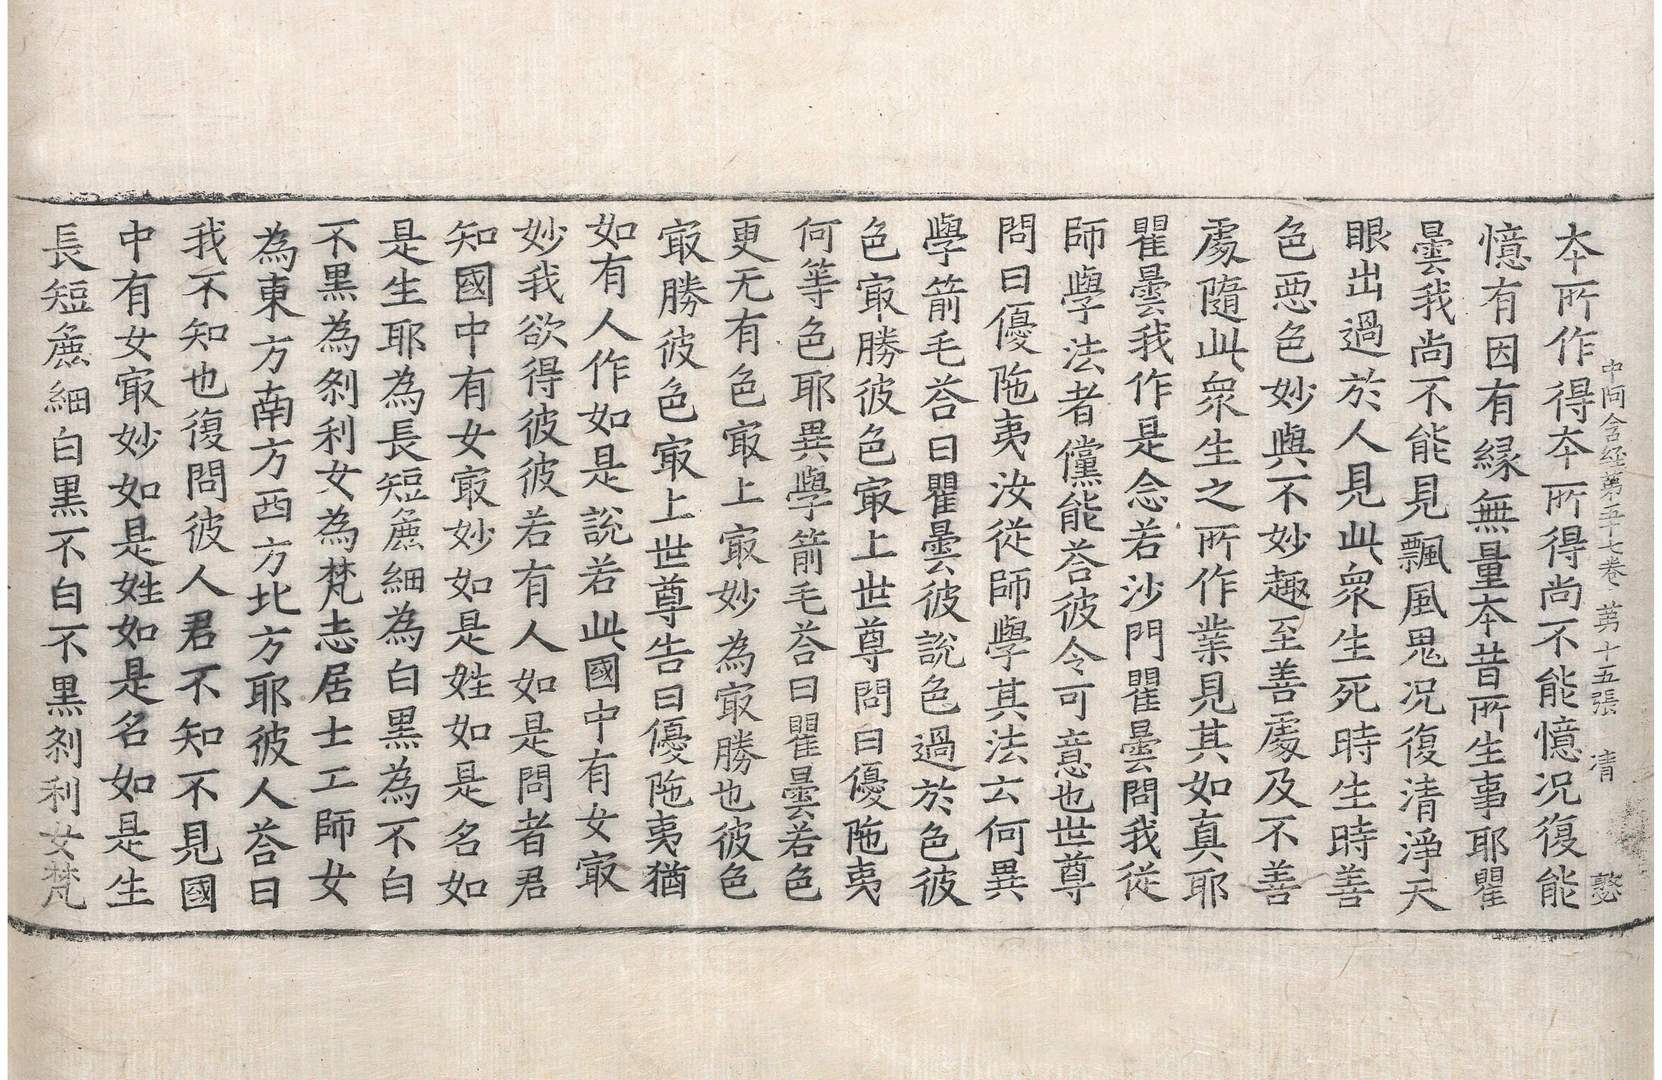 中阿含経苐五十七巻 苐十五張 清 慜
夲所作得夲所得尚不能憶况復能
憶有因有縁無量夲昔所生事耶瞿
曇我尚不能見飄風䰟况復清淨天
眼出過於人見此衆生死時生時善
色惡色妙與不妙趣至善處及不善
處隨此衆生之所作業見其如真耶
瞿曇我作是念若沙門瞿曇問我從
師學法者儻能荅彼令可意也世尊
問曰優陁夷汝從師學其法云何異
學箭毛荅曰瞿曇彼說色過於色彼
色㝡勝彼色㝡上世尊問曰優陁夷
何等色耶異學箭毛荅曰瞿曇若色
更无有色㝡上㝡妙為㝡勝也彼色
㝡勝彼色㝡上世尊告曰優陁夷猶
如有人作如是說若此國中有女㝡
妙我欲得彼彼若有人如是問者君
知國中有女㝡妙如是姓如是名如
是生耶為長短麁細為白黒為不白
不黒為刹利女為梵志居士工師女
為東方南方西方北方耶彼人荅曰
我不知也復問彼人君不知不見國
中有女㝡妙如是姓如是名如是生
長短麁細白黒不白不黒刹利女梵